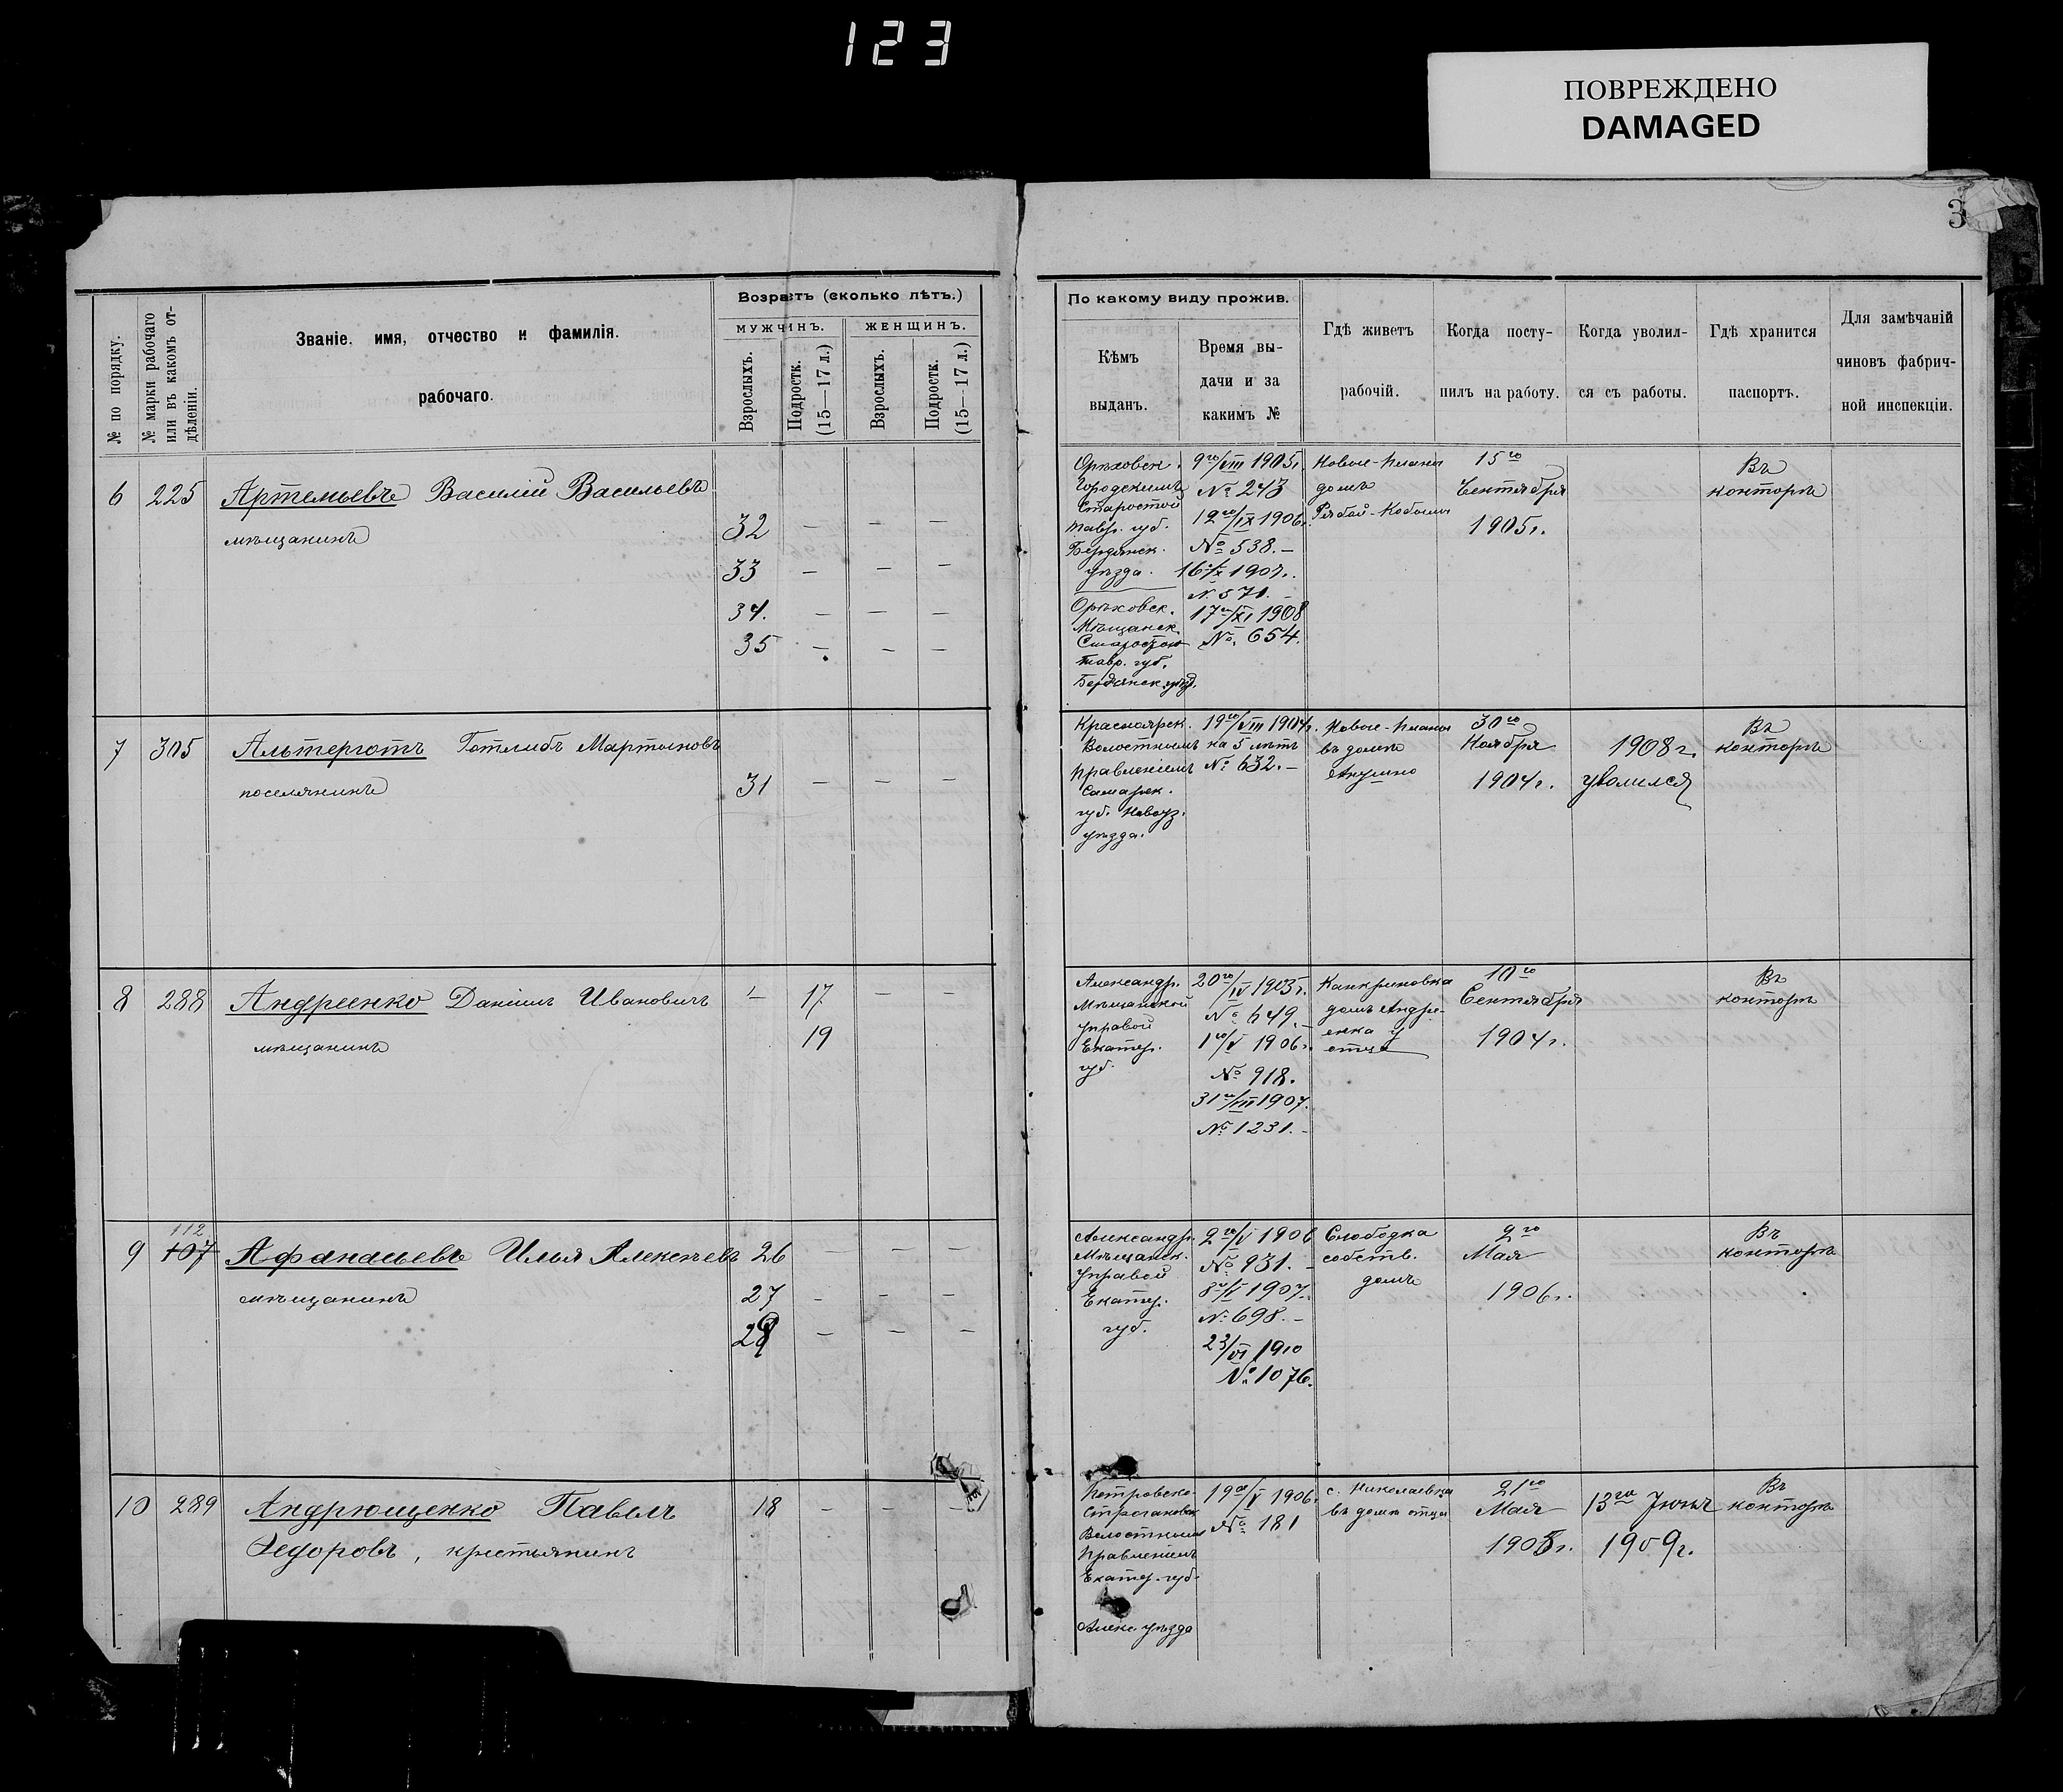 123
ПОВРЕЖДЕНО
DAMAGED
3
№ по порядку.
№ марки рабочаго
или въ какомъ от-
дѣленіи.
Званіе. имя, отчество и фамилія.
рабочаго.
Возрастъ (сколько лѣтъ.)
МУЖЧИНЪ.
ЖЕНЩИНЪ.
Взрослыхъ.
Подростк.
(15—17 л.)
Взрослыхъ.
Подростк.
(15—17 л.)
По какому виду прожив.
Кѣмъ
выданъ.
Время вы-
дачи и за
какимъ №
Гдѣ живетъ
рабочій.
Когда посту-
пилъ на работу.
Когда уволил-
ся съ работы.
Гдѣ хранится
паспортъ.
Для замѣчаній
чиновъ фабрич-
ной инспекціи.
6 225 Артемьевъ Василій Васильевъ
мѣщанинъ
32 — — —
33 — — —
34. — — —
35 — — —
Орѣховск.
Городскимъ
Старостой
Тавр. губ.
Бердянск.
уѣзда.
Орѣховск.
Мѣщанск.
Старостою
Тавр. губ.
Бердянск. уѣзд.
9го/VIII 1905г.
№ 243
12го/IX 1906г.
№ 538.—
16го/X 1907г.
№ 571.—
17го/XI 1908
№ 654.
домъ
15го
Сентября
1905г.
Въ
конторѣ
7 305 Альтерготъ Готлибъ Мартыновъ
поселянинъ
31 — — —
Красноярск.
Волостнымъ
Правленіемъ
Самарск.
губ. Новоуз.
уѣзда.
19го/VIII 1904г.
на 5 лѣтъ
№ 632.—
въ домѣ
30го
Ноября
1904г.
1908г.
уволился
Въ
конторѣ
8 288 Андреенко Даніилъ Ивановичъ
мѣщанинъ
— 17. — —
19
Александр.
Мѣщанской
Управой
Екатер.
губ.
20го/IV 1905г.
№ 649.—
1го/V 1906г.
№ 918.
31го/VIII 1907.
№ 1231.—
Канкриновка
домъ Андре-
енка у
отца
10го
Сентября
1904г.
Въ
конторѣ
9 112
107 Афанасьевъ Илья Алексѣевъ 26 — —
мѣщанинъ
27 — — —
29 — — —
Александр.
Мѣщанск.
Управой
Екатер.
губ.
2го/V 1906
№ 931.—
8го/V 1907г.
№ 698.—
23/VI 1910
№ 1076.
Слободка
собств.
домъ
2го
Мая
1906г.
Въ
конторѣ
10 289 Андрющенко Павелъ 18 — — —
Федоровъ, крестьянинъ
Петровско-
Волостнымъ
Правленіемъ
Екатер. губ.
Алекс. уѣзда
19го/V 1906г.
№ 181
с. Николаевка
въ домѣ отца
21го
Мая
13го Іюня
1909г.
Въ
конторѣ